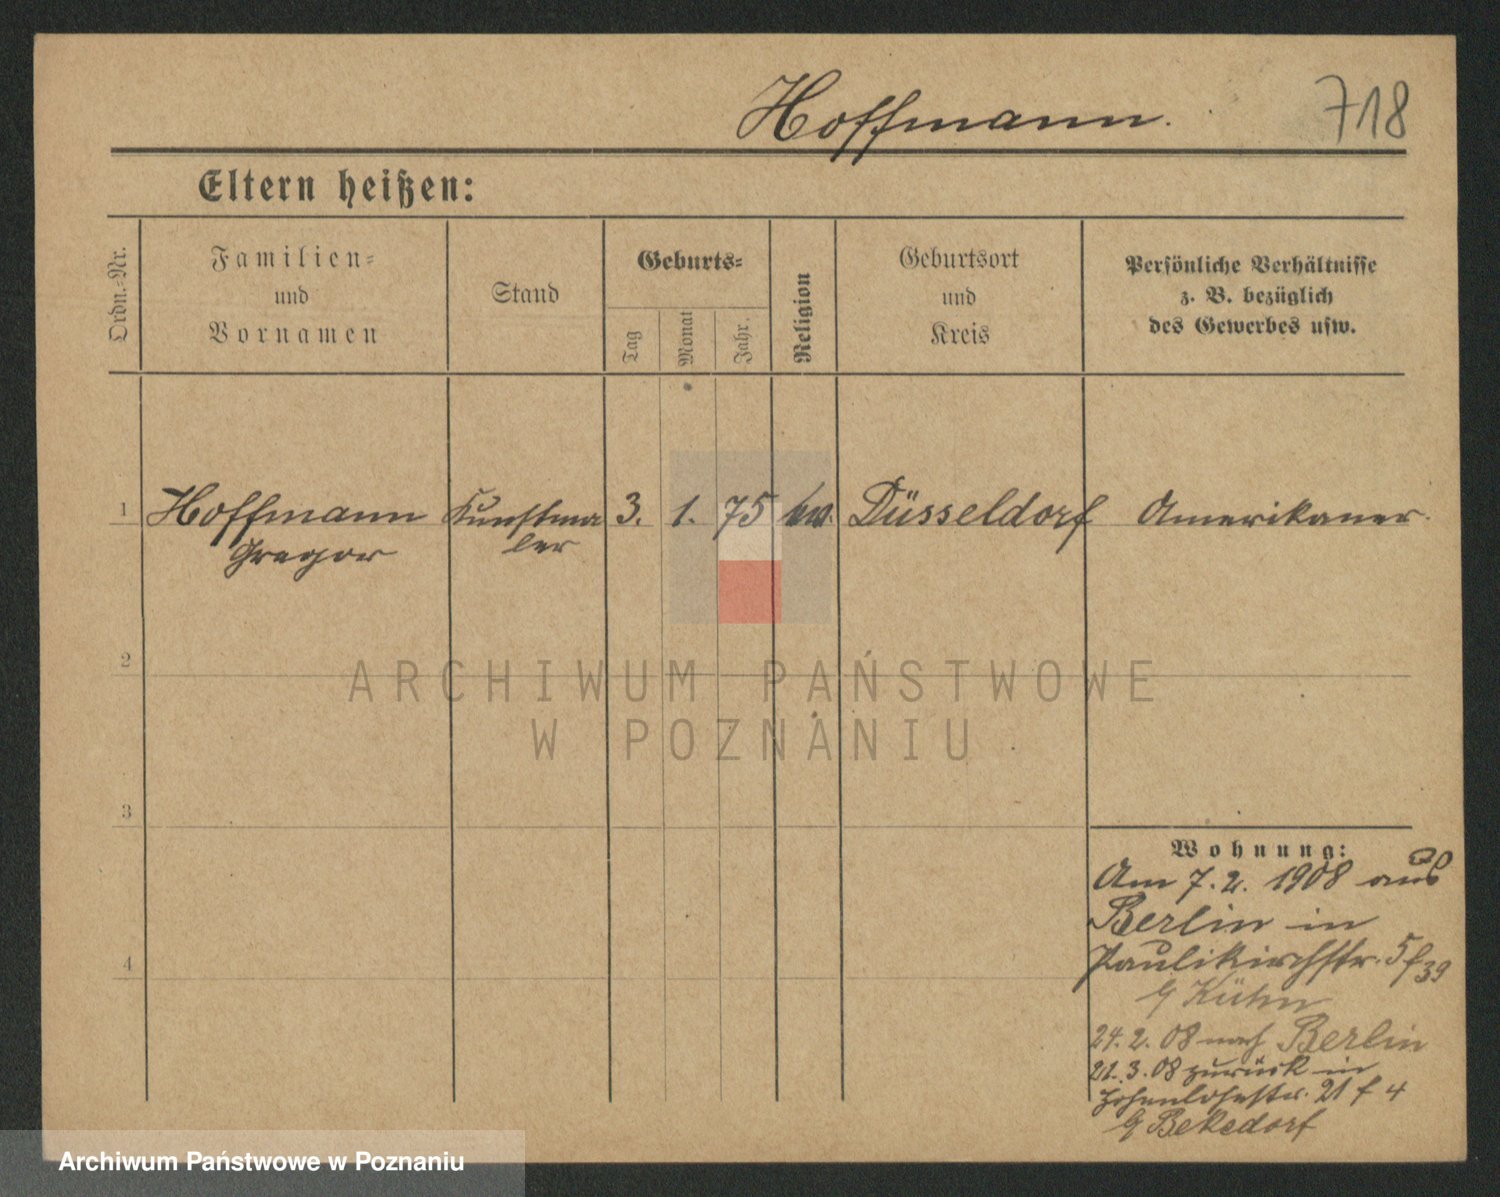 Hoffmann.
718
Eltern heißen:
Ordn.-Nr.
Familien-
und
Vornamen
Stand
Geburts-
Tag
Monat
Jahr.
Religion
Geburtsort
und
Kreis
Persönliche Verhältnisse
z. B. bezüglich
des Gewerbes usw.
1 Hoffmann Kunstma 3. 1. 75 Düsseldorf Amerikaner.
Gregor ler
2
ARCHIWUM PAŃSTWOWE
W POZNANIU
3
Wohnung:
Am 7. 2. 1908 aus
Berlin in
4 Paulikirchstr. 5 f 39
Kühn
24. 2. 08 nach Berlin
21. 3. 08 zurück in
Hohenlohestr. 21 f 4
Bekedorf
Archiwum Państwowe w Poznaniu